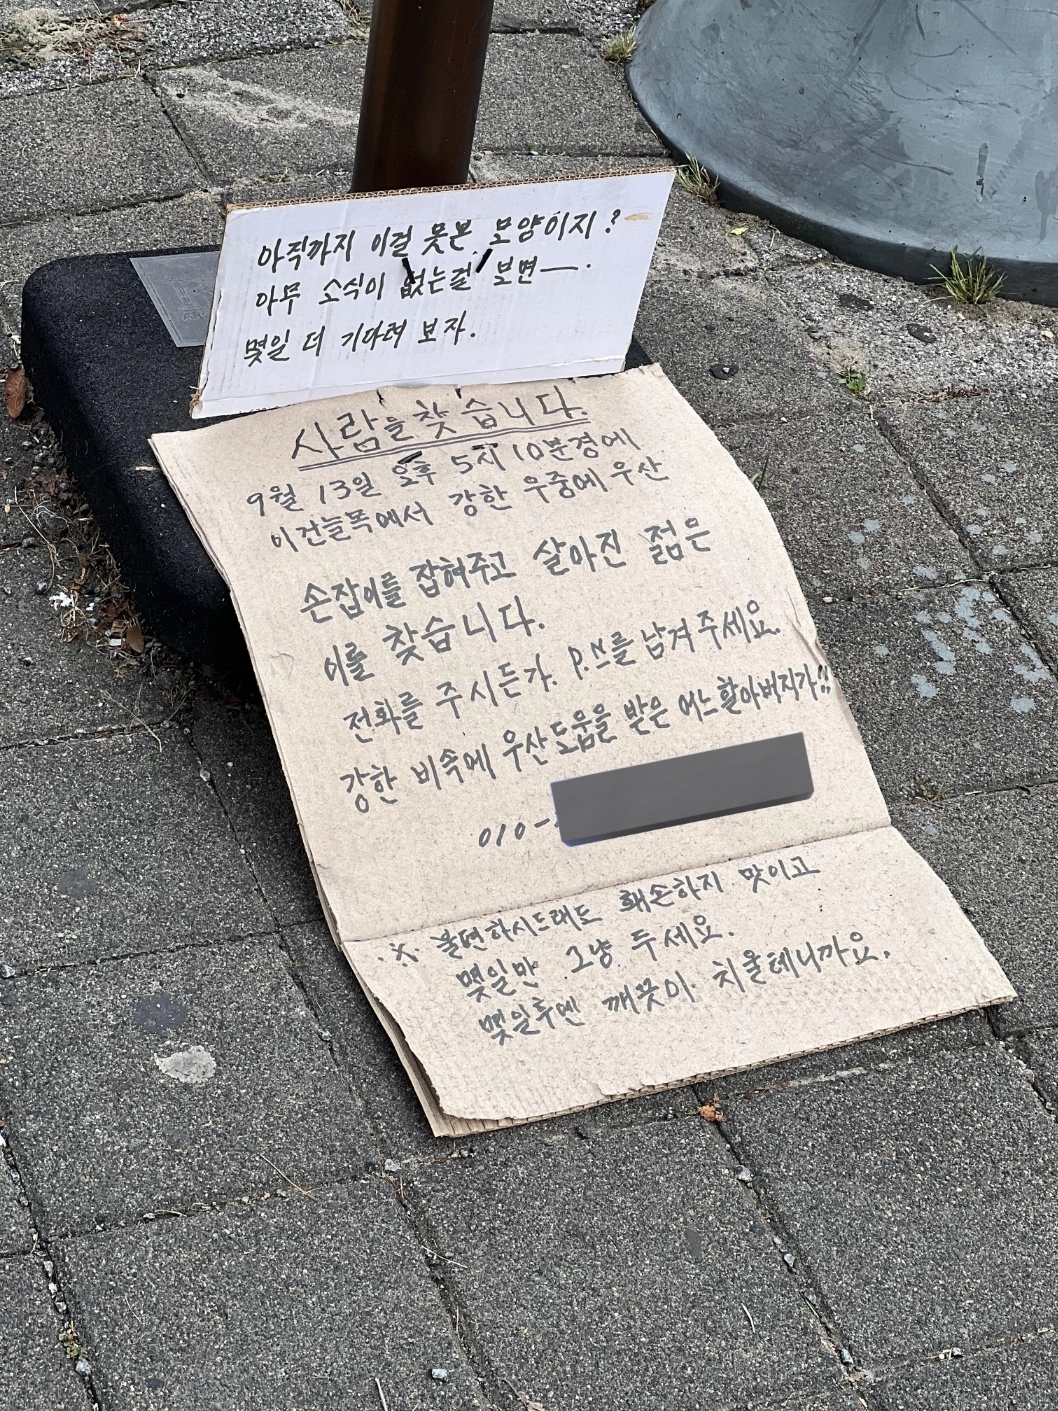 아직까지 이걸 못본 모양이지?
아무 소식이 없는걸 보면―.
몇일 더 기다려 보자.
사람을 찾습니다.
9월 13일 오후 5시 10분경에
이건늘목에서 강한 우중에 우산
손잡이를 잡혀주고 살아진 젊은
이를 찾습니다.
전화를 주시든가. P.S를 남겨 주세요.
강한 비속에 우산 도움을 받은 어느 할아버지가!!
010-
※ 불면하시드래도 홰손하지 맛이고
몇일만 그냥 두세요.
몇일후엔 깨끗이 치울테니까요.